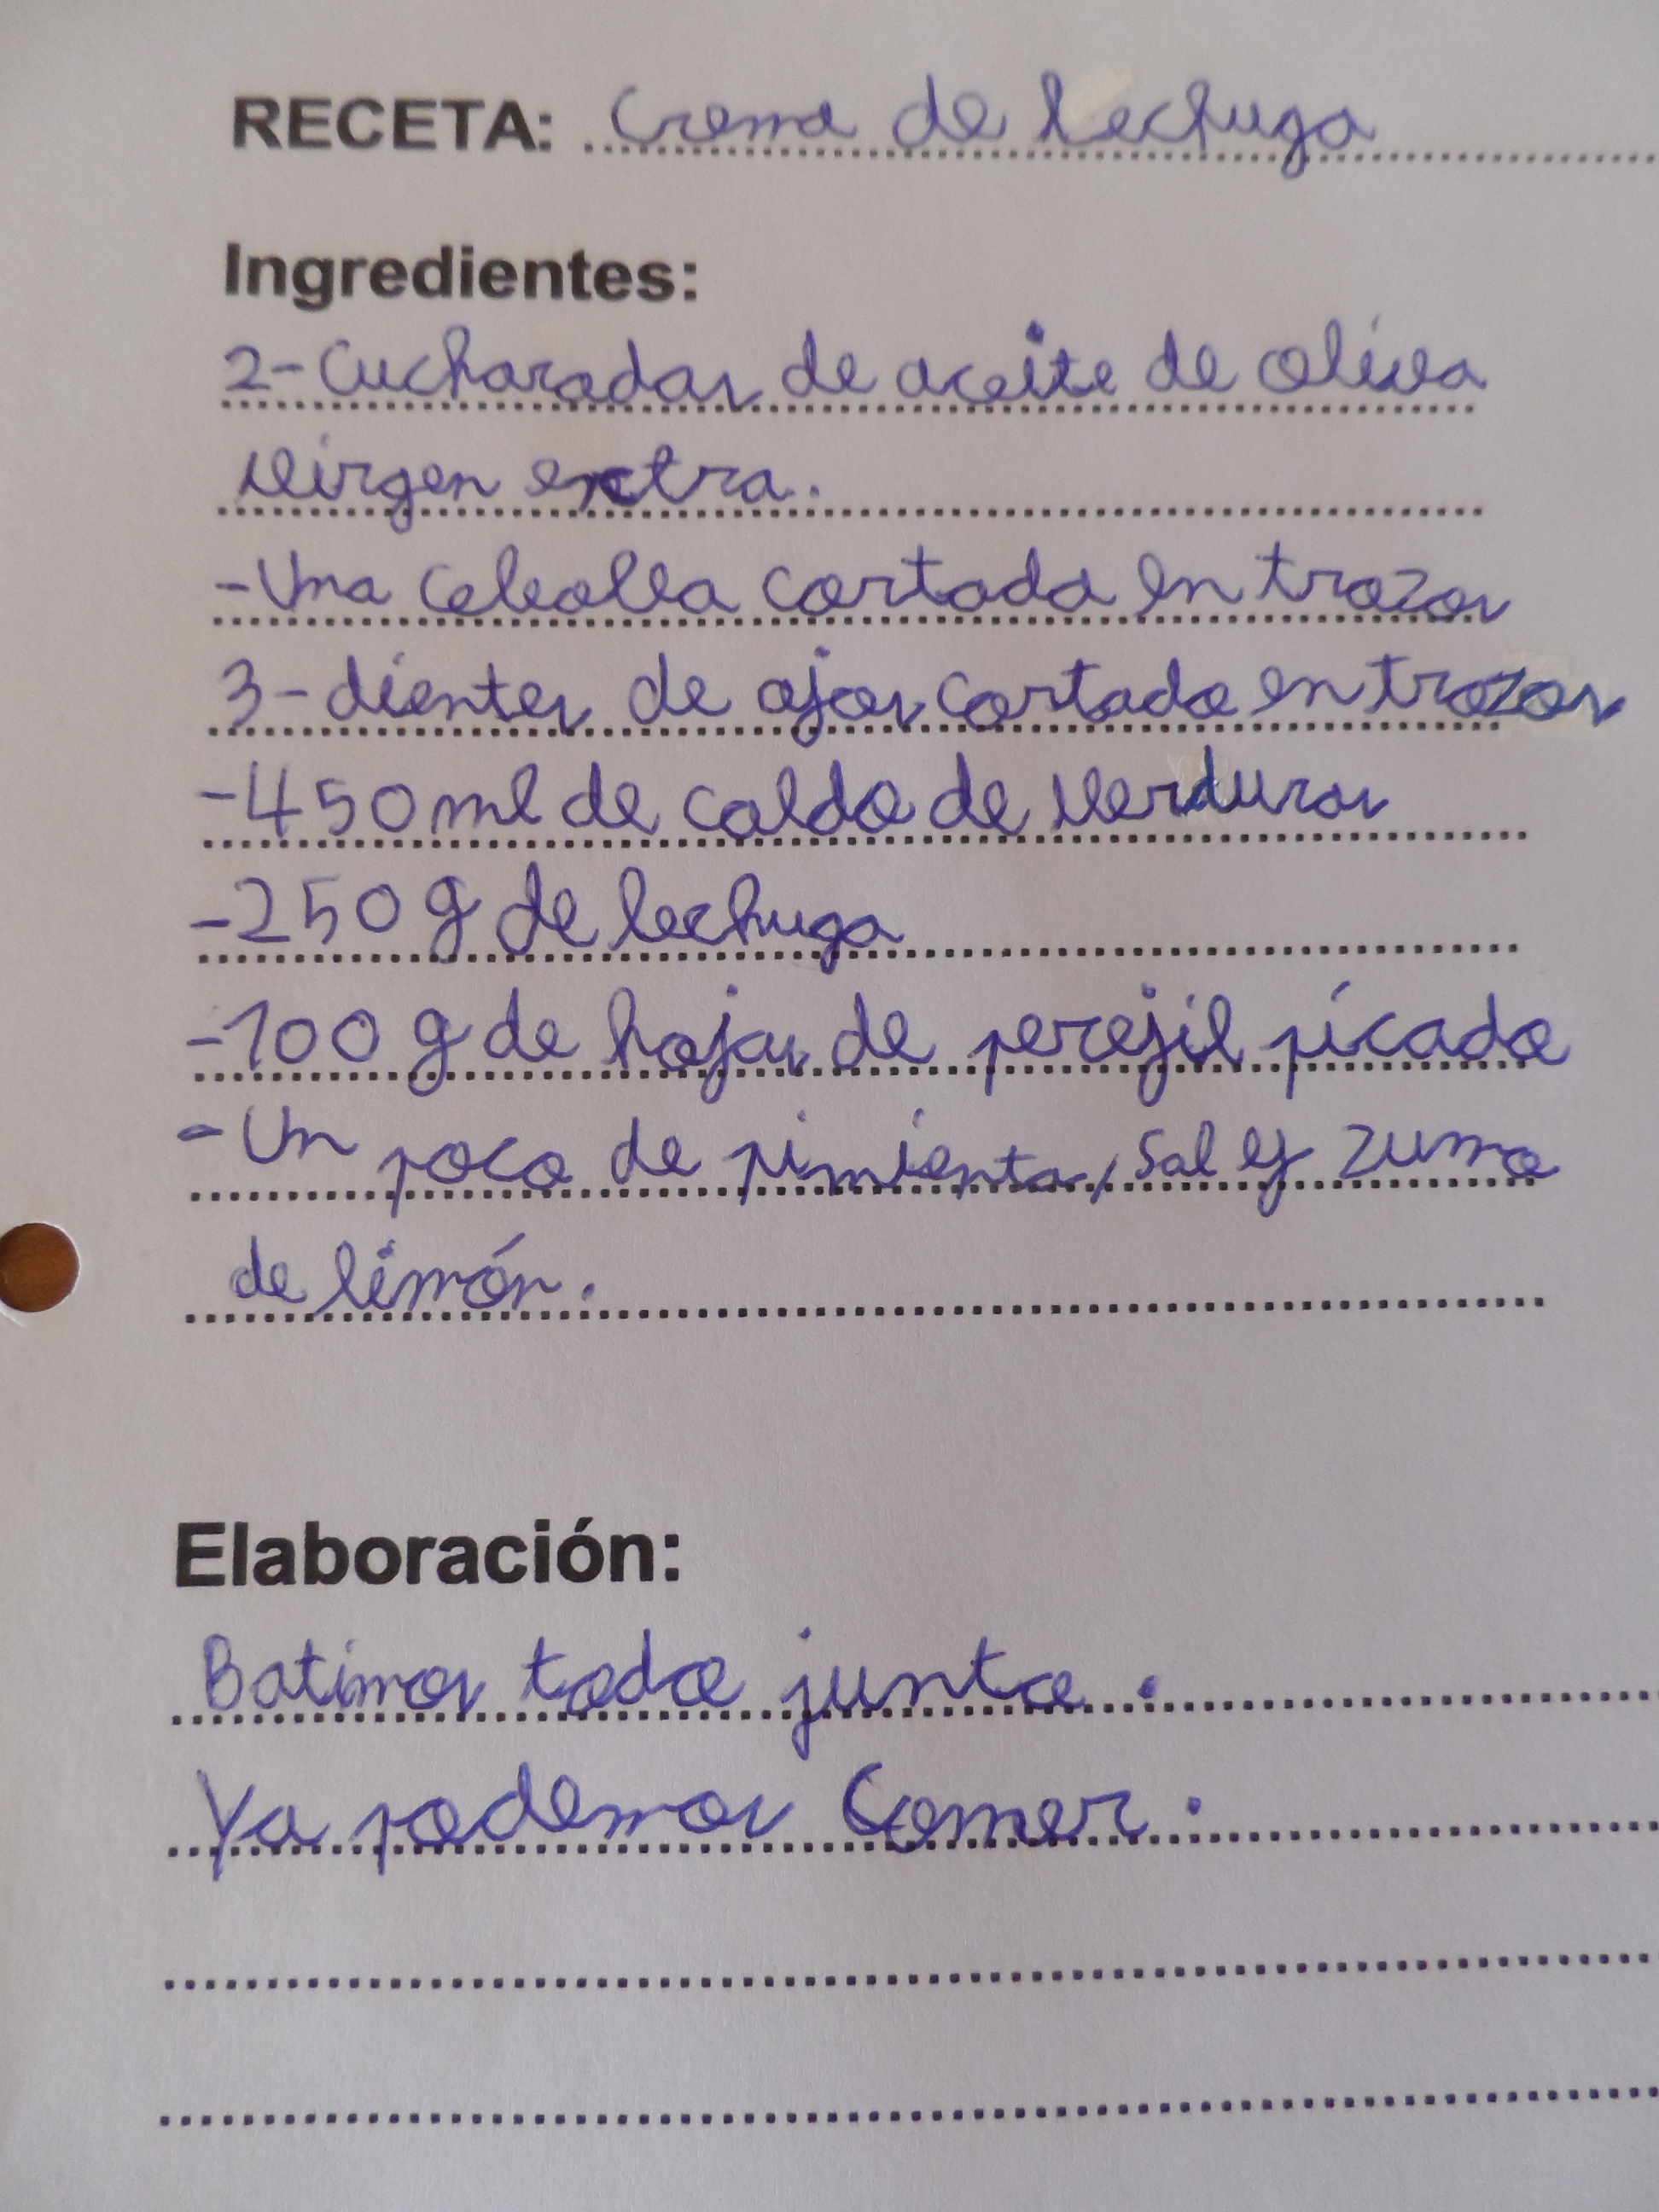 RECETA: Crema de lechuga
Ingredientes:
2-Cucharadas de aceite de oliva
virgen extra.
-Una cebolla cortada en trozos
3-dientes de ajos cortado en trozos
-450 ml de caldo de verduras
-250 g de lechuga
-100 g de hojas de perejil picado
-Un poco de pimienta, sal y zumo
de limón.
Elaboración:
Batimos todo junto.
Ya podemos Comer.